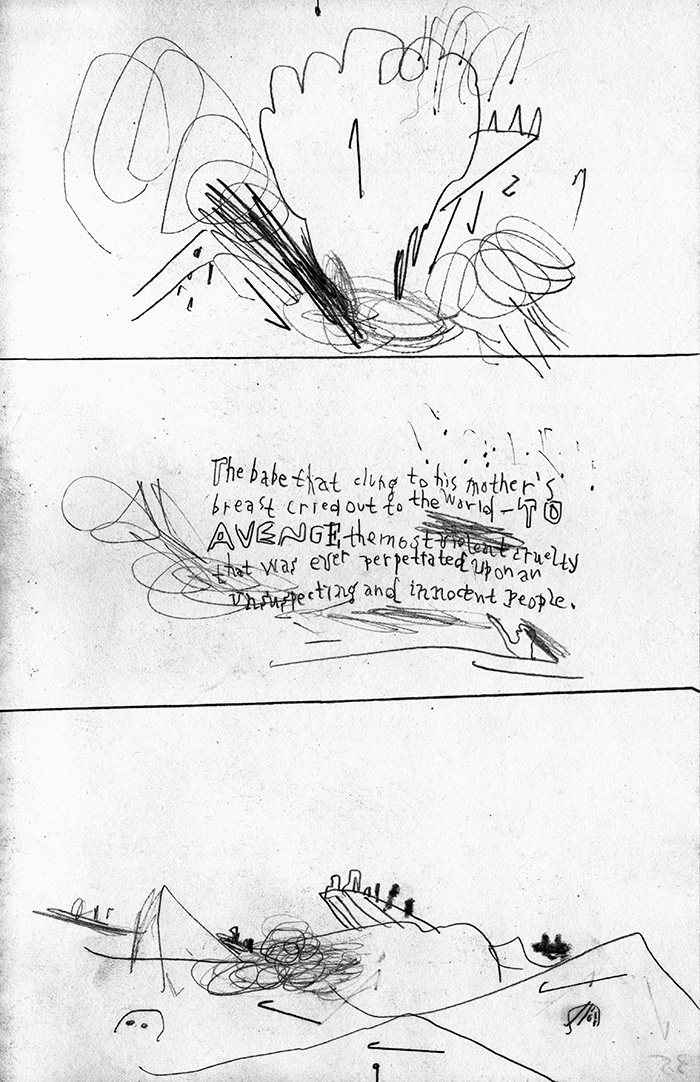 1
2
The babe that clung to his mother's
breast cried out to the World – TO
AVENGE the most violent cruelty
that was ever perpetrated upon an
unsuspecting and innocent people.
35